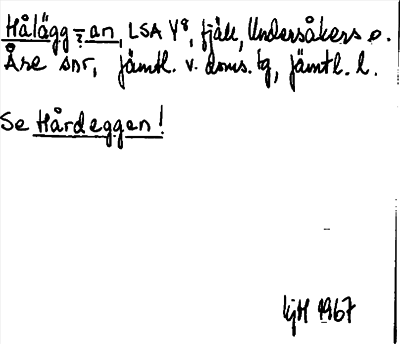 Hålägg=an, LSA Y8, fjäll, Undersåkers o.
Åre snr, Jämtl. v. doms. tg, Jämtl. l.
Se Hårdeggen!
GjH 1967